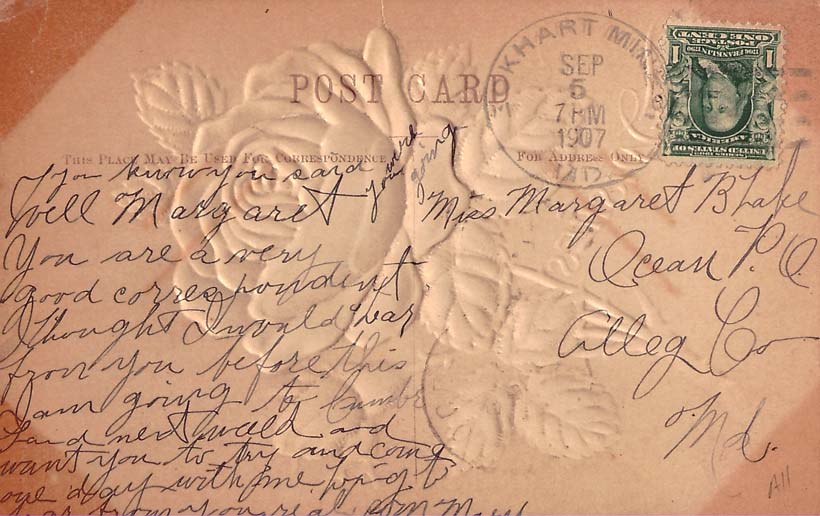 POST CARD
THIS PLACE MAY BE USED FOR CORRESPONDENCE
FOR ADDRESS ONLY
ECKHART MINES
SEP
5
7 PM
1907
MD.
ONE CENT
POSTAGE
1706 FRANKLIN 1790
1 1
UNITED STATES OF
AMERICA
you know you said you were going
Well Margaret
You are a very
good correspondent
I thought I would hear
from you before this
I am going to Cumber
land next week and
want you to try and come
one day with me hoping to
hear from you real soon
Miss Margaret Blake
Ocean P.O.
Alleg Co
Md.
All